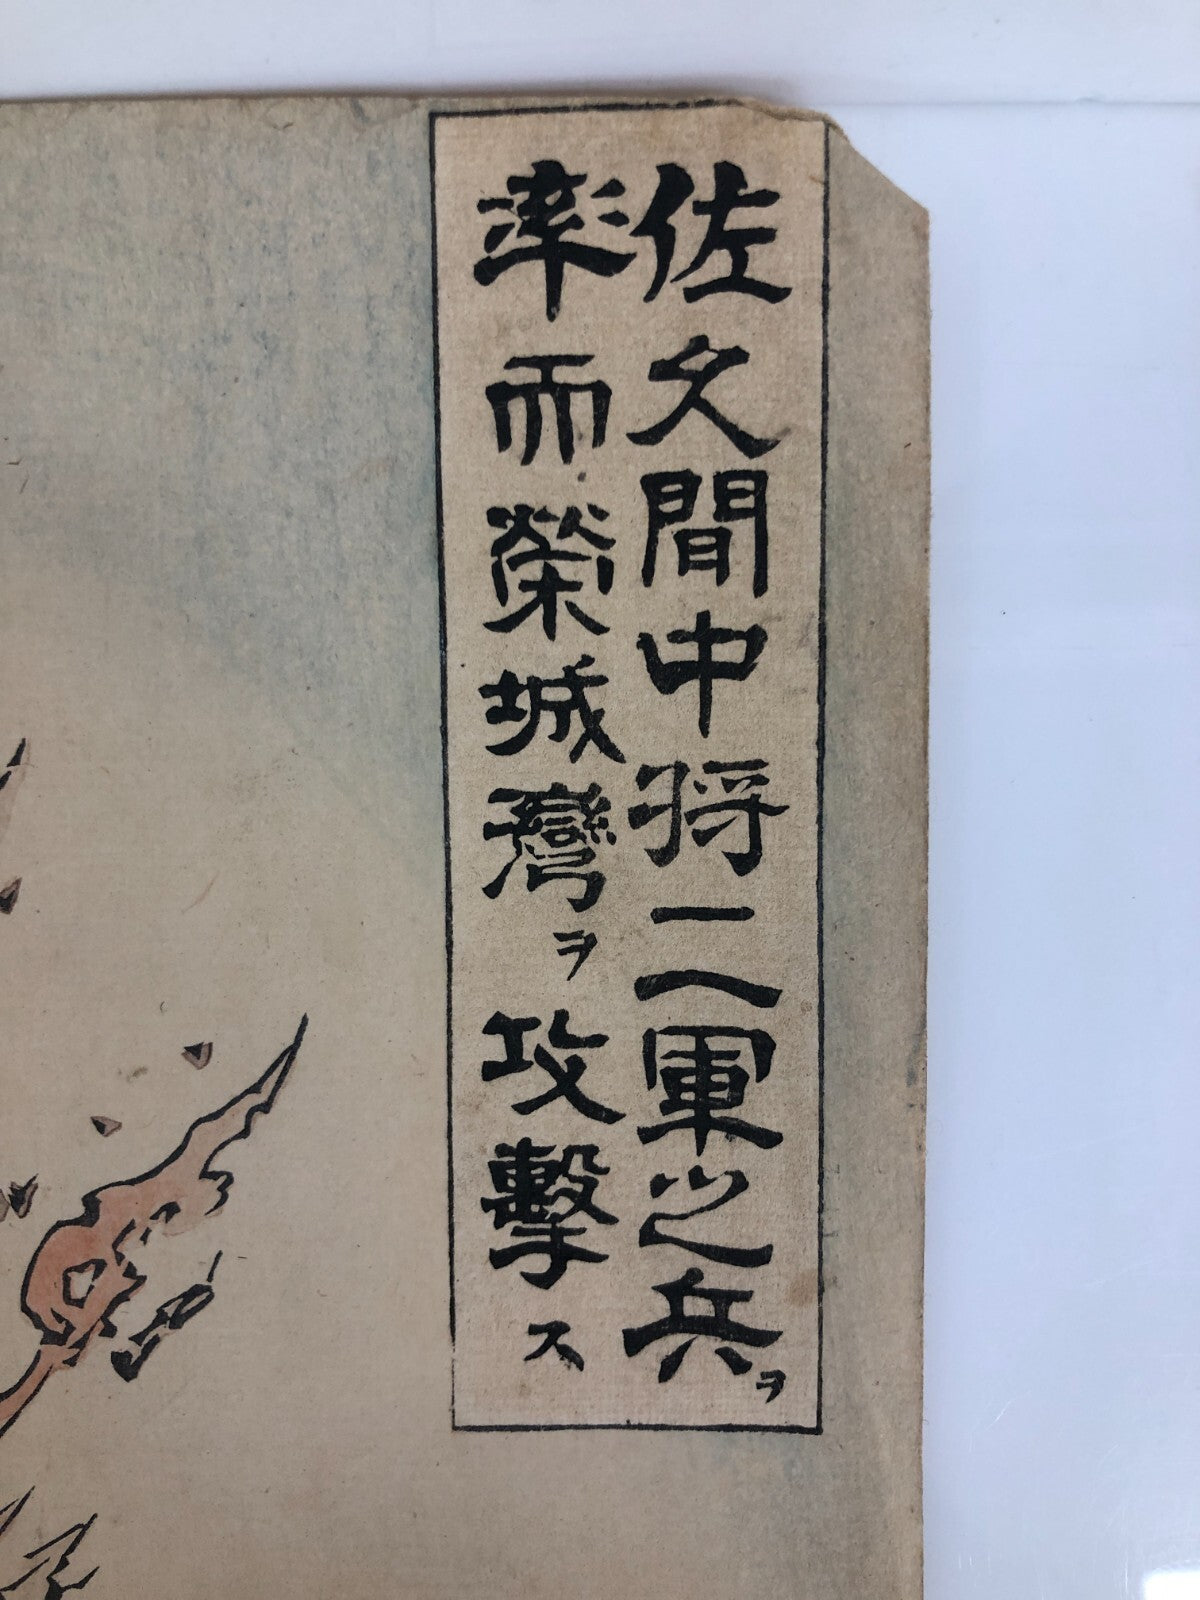 佐久間中将二軍之兵ヲ
率而榮城灣ヲ攻擊ス